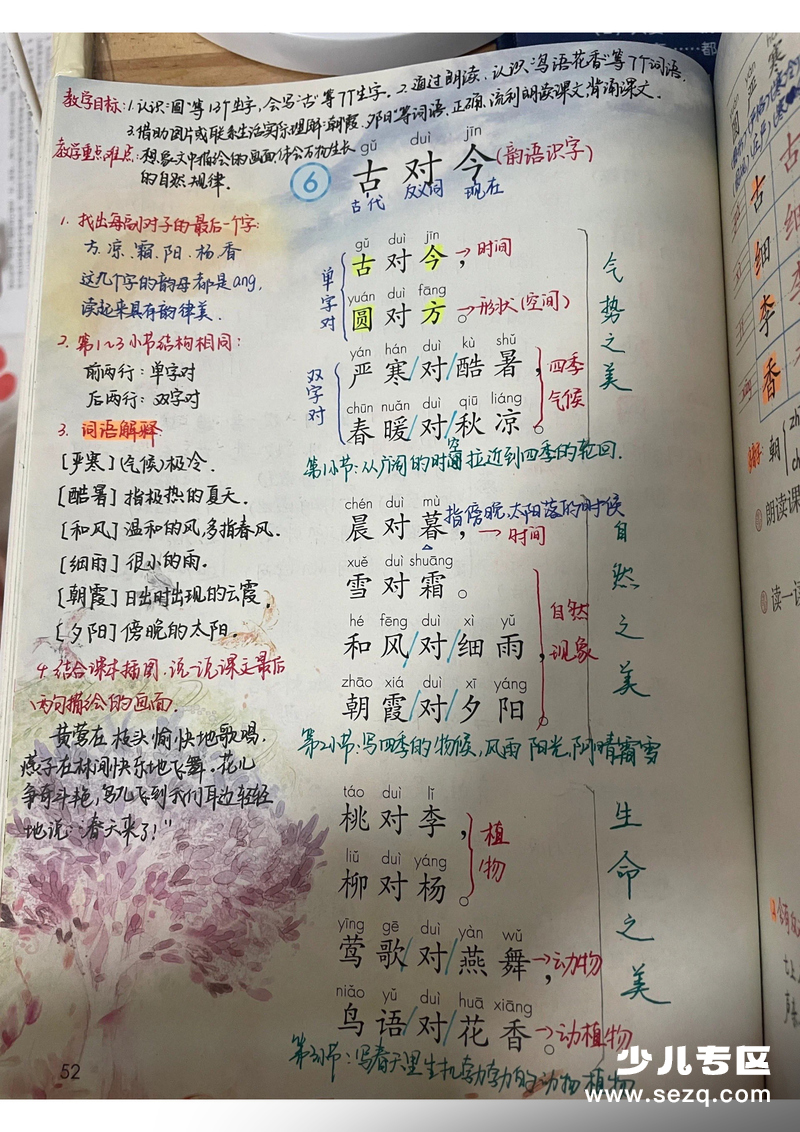 教学目标:1.认识"圆"等12个生字,会写"古"等7个生字。2.通过朗读,认识"鸟语花香"等7个词语。
3.借助图片或联系生活实际理解"朝霞、夕阳"等词语,正确、流利朗读课文,背诵课文。
教学重点难点:想象文中描绘的画面,体会万物生长
的自然规律.
gǔ duì jīn
6 古对今(韵语识字)
古代 反义词 现在
1. 找出每副对子的最后一个字:
方.凉.霜.阳.杨.香
这几个字的韵母都是ang,
读起来具有韵律美.
2. 第1.2.3小节结构相同:
前两行:单字对
后两行:双字对
3. 词语解释:
[严寒](气候)极冷.
[酷暑]指极热的夏天.
[和风]温和的风,多指春风.
[细雨]很小的雨.
[朝霞]日出时出现的云霞.
[夕阳]傍晚的太阳.
4.结合课本插图,说一说课文最后
两句描绘的画面.
黄莺在枝头愉快地歌唱.
燕子在林间快乐地飞舞.花儿
争奇斗艳,鸟儿飞到我们耳边轻轻
地说:"春天来了!"
单字对
gǔ duì jīn
古对今, →时间
yuán duì fāng
圆对方。 →形状(空间)
双字对
yán hán duì kù shǔ
严寒/对/酷暑,
四季气候
chūn nuǎn duì qiū liáng
春暖/对/秋凉。
气势之美
第1小节:从广阔的时空拉近到四季的轮回.
chén duì mù
晨对暮, 指傍晚,太阳落的时候
→时间
xuě duì shuāng
雪对霜。
hé fēng duì xì yǔ
和风/对/细雨,
自然现象
zhāo xiá duì xī yáng
朝霞/对/夕阳。
自然之美
第2小节:写四季的物候,风雨 阳光,阴晴霜雪
táo duì lǐ
桃对李,
植物
liǔ duì yáng
柳对杨。
yīng gē duì yàn wǔ
莺歌/对/燕舞, →动物
niǎo yǔ duì huā xiāng
鸟语/对/花香。 →动植物
生命之美
第3小节:写春天里生机勃勃的动物 植物
52
严寒
古
细
李
香
朝
朗读课
读一读
少儿专区
www.sezq.com